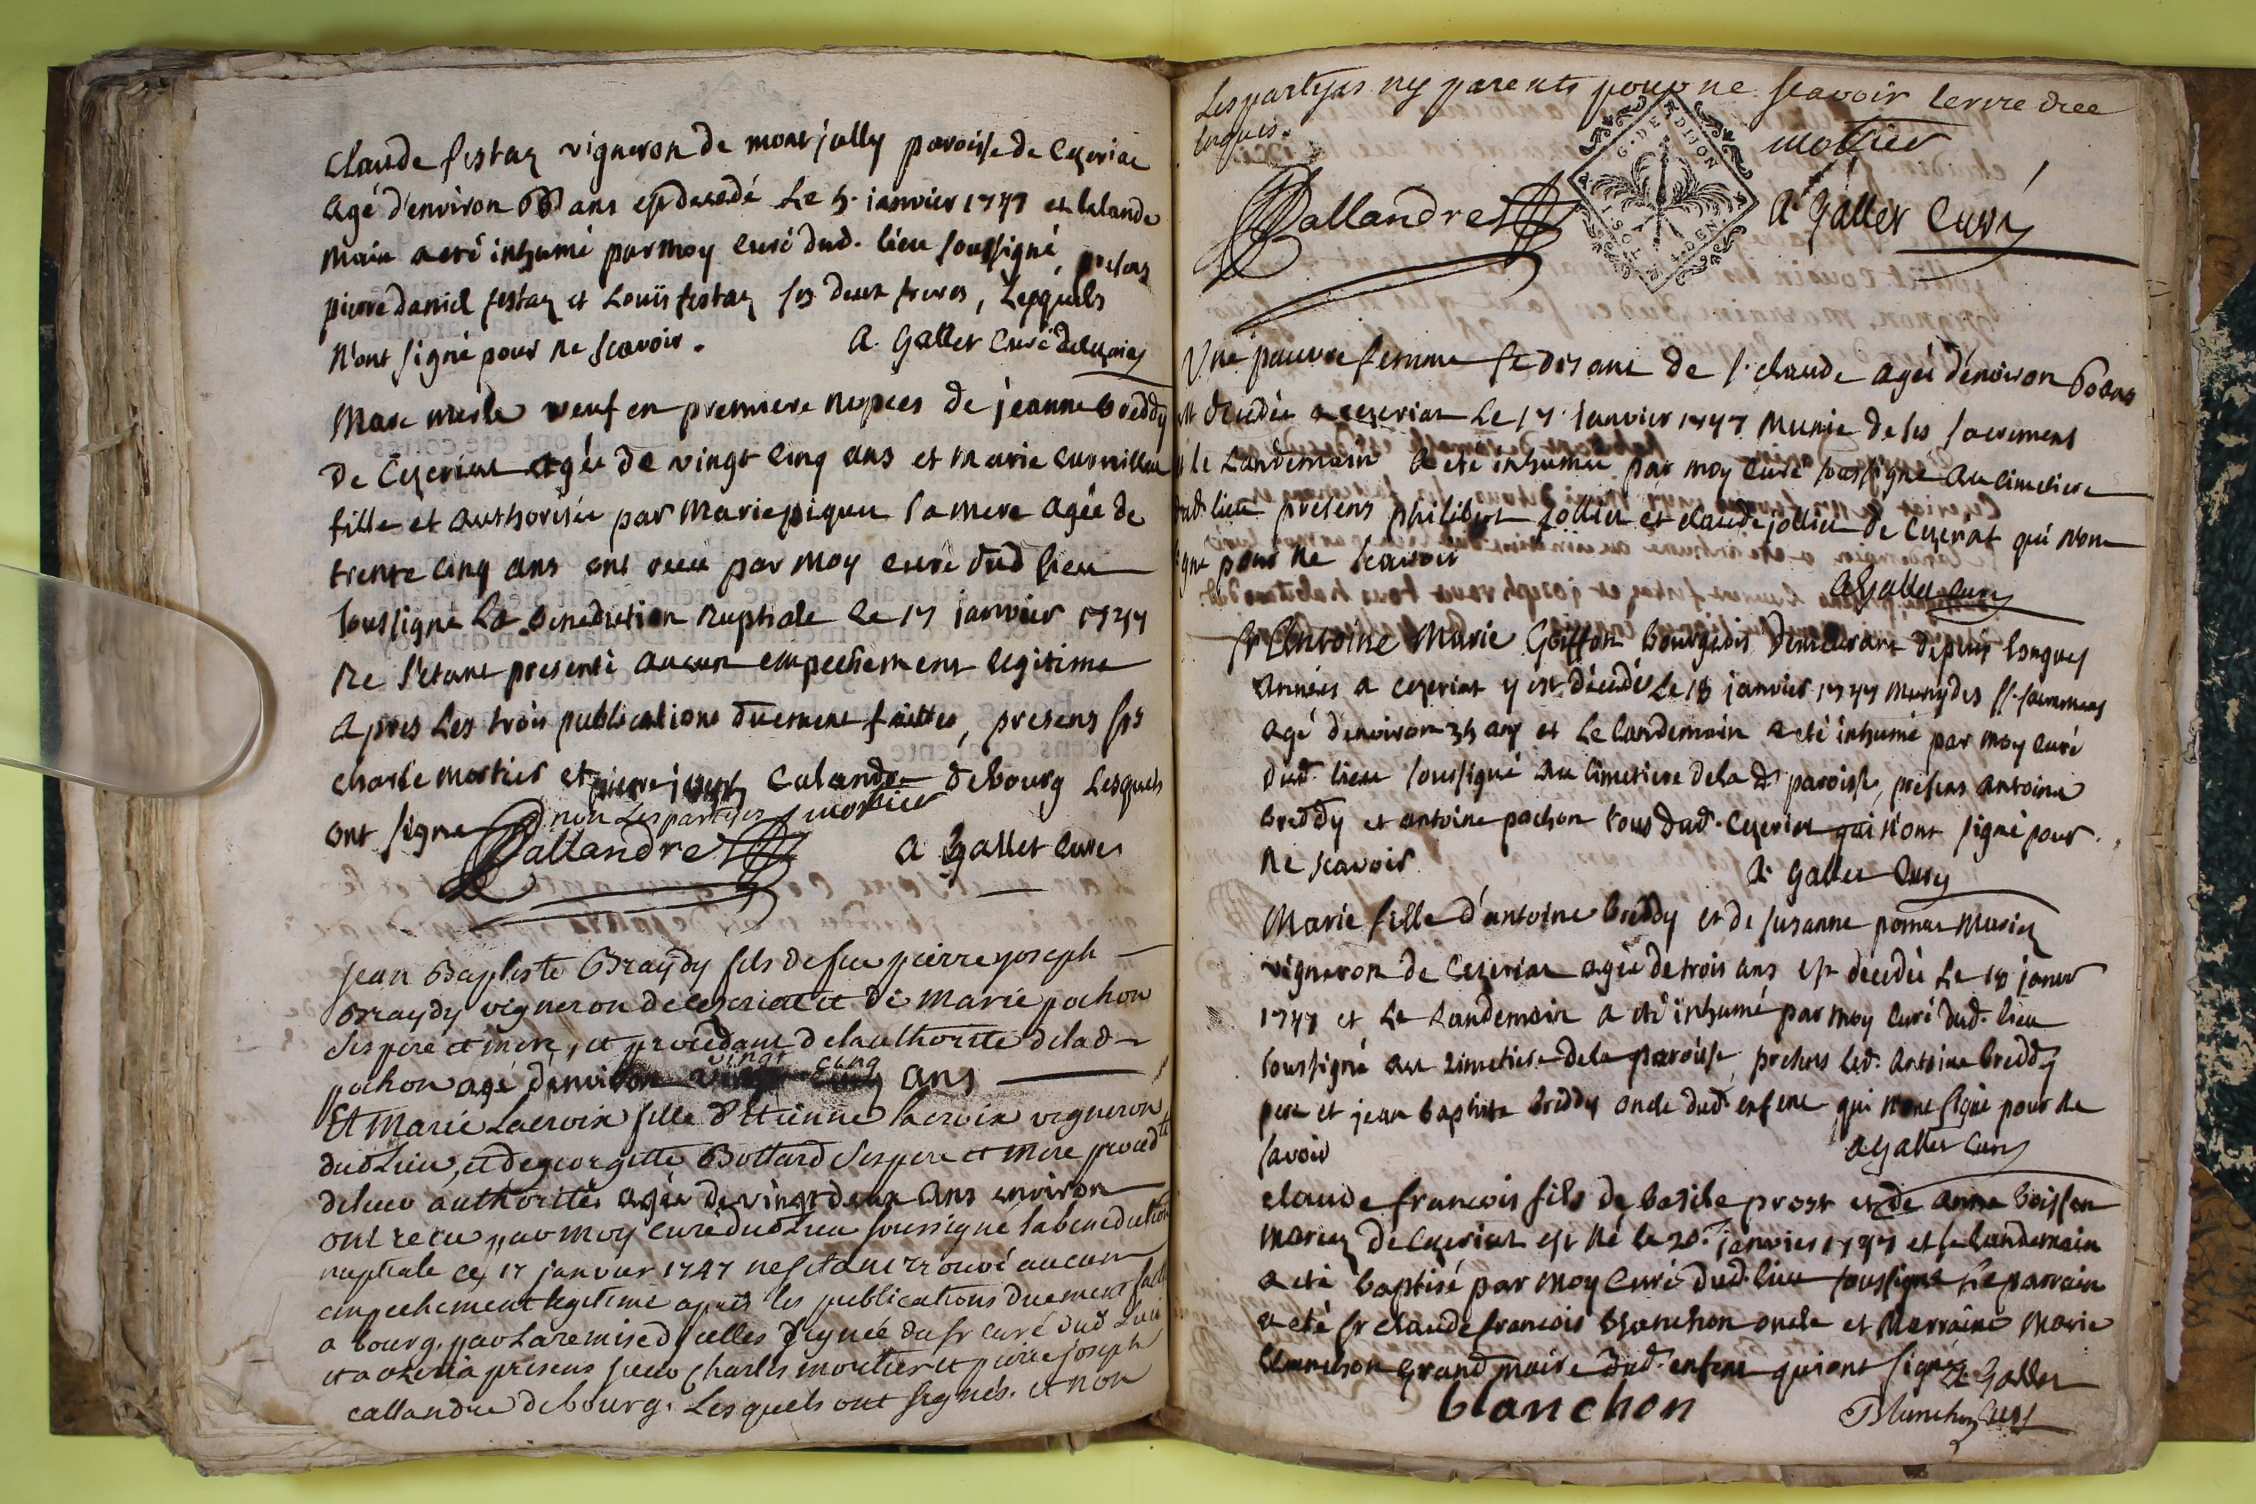 Claude festaz vigneron de montjully paroisse de Cezeriat
agé d'environ 66 ans est decedé Le 5. janvier 1747 et lelande
main a eté inhumé par moy curé dud. lieu soussigné, presens
pierre daniel festaz et Louïs festaz ses deux freres, Lesquels
n'ont signé pour ne scavoir. A. Gallet Curé
Marc merle veuf en premiere nopces de jeanne breddy
de Cezeriat agée de vingt cinq ans et Marie
fille et authorisée par Marie piquet sa mere agée de
trente cinq ans ont receu par moy curé dud lieu
soussigné La Benediction nuptiale Le 17 janvier 1747
ne s'etant presenté aucun empechement legitime
apres Les trois publications duement faittes, presens srs
charle mortier et pierre joseph Calandre de bourg Lesquels
ont signe non Les partyes mortier
Callandre A Gallet Curé
jean Baptiste Brayddy fils de feu pierre joseph
Brayddy vigneron de cezeriat et de Marie pochon
ses pere et mere, et procedant de lauthorité de lad
pochon agé denviron vingt cinq ans
Et Marie Lacroix fille d'Etienne lacroix vigneron
dud Lieu, et de georgette Bottard ses pere et mere proced
de leur authorités agée de vingt deux ans environ
ont receu par moy curé dud Lieu soussigné la benediction
nuptiale ce 17 janvier 1747 ne sestant trouvé aucun
empechement legitime après les publications duement faittes
a bourg, par La remise d'ycelles signée du sr curé dud Lieu
et a Cezeria presens sieur Charles mortier et pierre joseph
callandre de bourg. Lesquels ont signés. et non
Les partyes ny parents pour ne scavoir
requis. mortier
G. DE DIJON
Callandre A Gallet Curé
Une pauvre femme se disant de st. claude agée d'environ 60 ans
est decedée a cezeriat Le 17. janvier 1747 Munie de ses sacrements
et le Landemain a eté inhumée par moy curé soussigné au cimetiere
dud. lieu presens philibert jollier et claude jollier de Cezeriat qui n'ont
signé pour ne scavoir
A Gallet Curé
Sr Antoine Marie Goiffon bourgeois demeurant depuis longues
années a cezeriat y est décédé Le 18 janvier 1747 muny des st. sacremens
agé d'environ 35 ans et Le landemain a eté inhumé par moy curé
dud. lieu soussigné au cimetiere de la de paroisse, presens antoine
breddy et antoine pochon tous dud. Cezeriat qui n'ont signé pour
ne scavoir. A. Gallet Curé
Marie fille d'antoine breddy et de susanne Mariez
vigneron de Cezeriat agée de trois ans est décédée Le 18 janvier
1747 et Le Landemain a eté inhumé par moy curé dud. lieu
soussigné au cimetiere de la paroisse, presens led. antoine breddy
pere et jean baptiste breddy oncle dud. enfent qui n'ont signé pour ne
savoir A Gallet Curé
claude francois fils de basile prost et de anne boisson
mariez de Cezeriat est né le 20. janvier 1747 et le landemain
a eté baptisé par moy curé dud. lieu soussigné Le parrain
a eté sr claude francois blanchon oncle et Marraine Marie
blanchon grand maire dud. enfent qui ont signé. A Gallet
blanchon Blanchon Curé